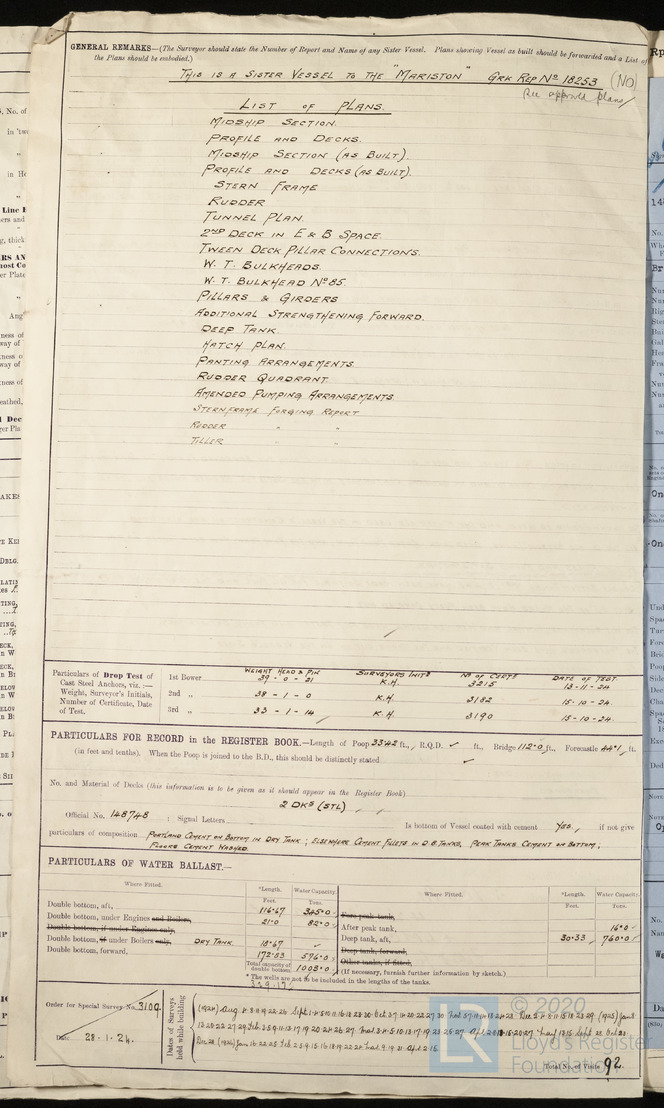 GENERAL REMARKS—(The Surveyor should state the Number of Report and Name of any Sister Vessel. Plans showing Vessel as built should be forwarded and a List of
the Plans should be embodied.)
THIS IS A SISTER VESSEL TO THE "MARISTON" GRK REP Nº 18253 (NO)
See approved plans
LIST OF PLANS.
MIDSHIP SECTION.
PROFILE AND DECKS.
MIDSHIP SECTION (AS BUILT).
PROFILE AND DECKS (AS BUILT).
STERN FRAME
RUDDER
TUNNEL PLAN.
2ND DECK IN E & B SPACE.
TWEEN DECK PILLAR CONNECTIONS.
W. T. BULKHEADS.
W. T. BULKHEAD Nº 85.
PILLARS & GIRDERS
ADDITIONAL STRENGTHENING FORWARD.
DEEP TANK.
HATCH PLAN.
PANTING ARRANGEMENTS.
RUDDER QUADRANT
AMENDED PUMPING ARRANGEMENTS.
STERNFRAME FORGING REPORT
RUDDER " "
TILLER " "
Particulars of Drop Test of
Cast Steel Anchors, viz.:—
Weight, Surveyor's Initials,
Number of Certificate, Date
of Test.
WEIGHT HEAD & PIN SURVEYORS INITS Nº OF CERTS DATE OF TEST
1st Bower 39-0-21 K.H. 3215 13-11-24
2nd „ 38-1-0 K.H. 3182 15-10-24.
3rd „ 33-1-14 K.H. 3190 15-10-24.
PARTICULARS FOR RECORD in the REGISTER BOOK.—Length of Poop 33·42 ft., R.Q.D. ft., Bridge 112·0 ft., Forecastle 44·1 ft.
(in feet and tenths). When the Poop is joined to the B.D., this should be distinctly stated
No. and Material of Decks (this information is to be given as it should appear in the Register Book)
2 DKS (STL)
Official No. 148748 ; Signal Letters Is bottom of Vessel coated with cement YES, if not give
particulars of composition PORTLAND CEMENT ON BOTTOM IN DRY TANK; ELSEWHERE CEMENT FILLETS IN D.B. TANKS, PEAK TANKS CEMENT ON BOTTOM,
FLOORS CEMENT WASHED.
PARTICULARS OF WATER BALLAST.—
Where Fitted. *Length. Water Capacity. Where Fitted. *Length. Water Capacity.
Feet. Tons. Feet. Tons.
Double bottom, aft, 116·67 345·0 Fore peak tank,
Double bottom, under Engines and Boilers, 21·0 82·0 After peak tank, 16·0
Double bottom, if under Engines only,
Double bottom, if under Boilers only, DRY TANK. 18·67 Deep tank, aft, 30·33 760·0
Double bottom, forward, 172·83 576·0 Deep tank, forward,
Total capacity of double bottom, 1003·0 Other tanks, if fitted,
(If necessary, furnish further information by sketch.)
* The wells are not to be included in the lengths of the tanks.
Order for Special Survey No. 3109
Date 28·1·24.
Dates of Surveys
held while building
Total No. of Visits 92
© 2020
Lloyd's Register
Foundation
LR